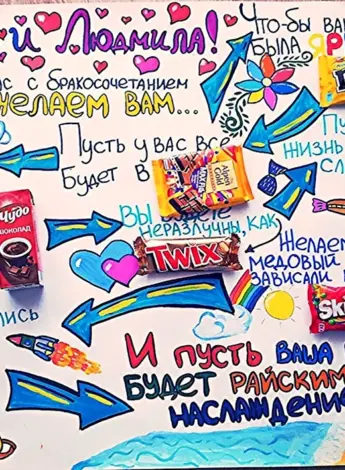 и Людмила!
Что-бы ва
была яр
ас с бракосочетанием
желаем вам...
Пусть у вас всё
Будет в
Alpen Gold
Пу
жизнь
сл
Чудо
шоколад
Вы
неразлучны, как
TWIX
Желаем
медовый
зависали
Ski
лись
И пусть ваша
будет райским
наслаждение